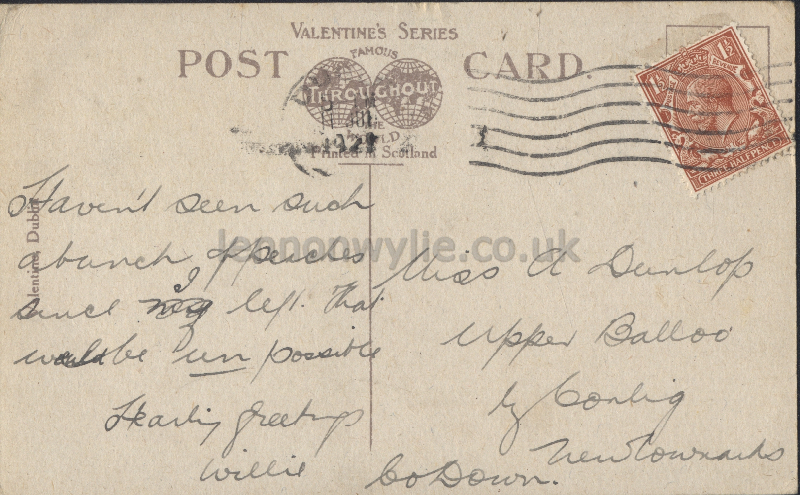 VALENTINE'S SERIES
POST CARD.
FAMOUS
THROUGHOUT
THE
WORLD
Printed in Scotland
1½ 1½
THREE HALFPENCE
JUL
192
Valentine, Dublin
lennonwylie.co.uk
Haven't seen such
a bunch of peaches
since I left. That
would be un possible
Hearty greetings
Willie
Miss A Dunlop
Upper Balloo
by Conlig
Newtownards
Co Down.